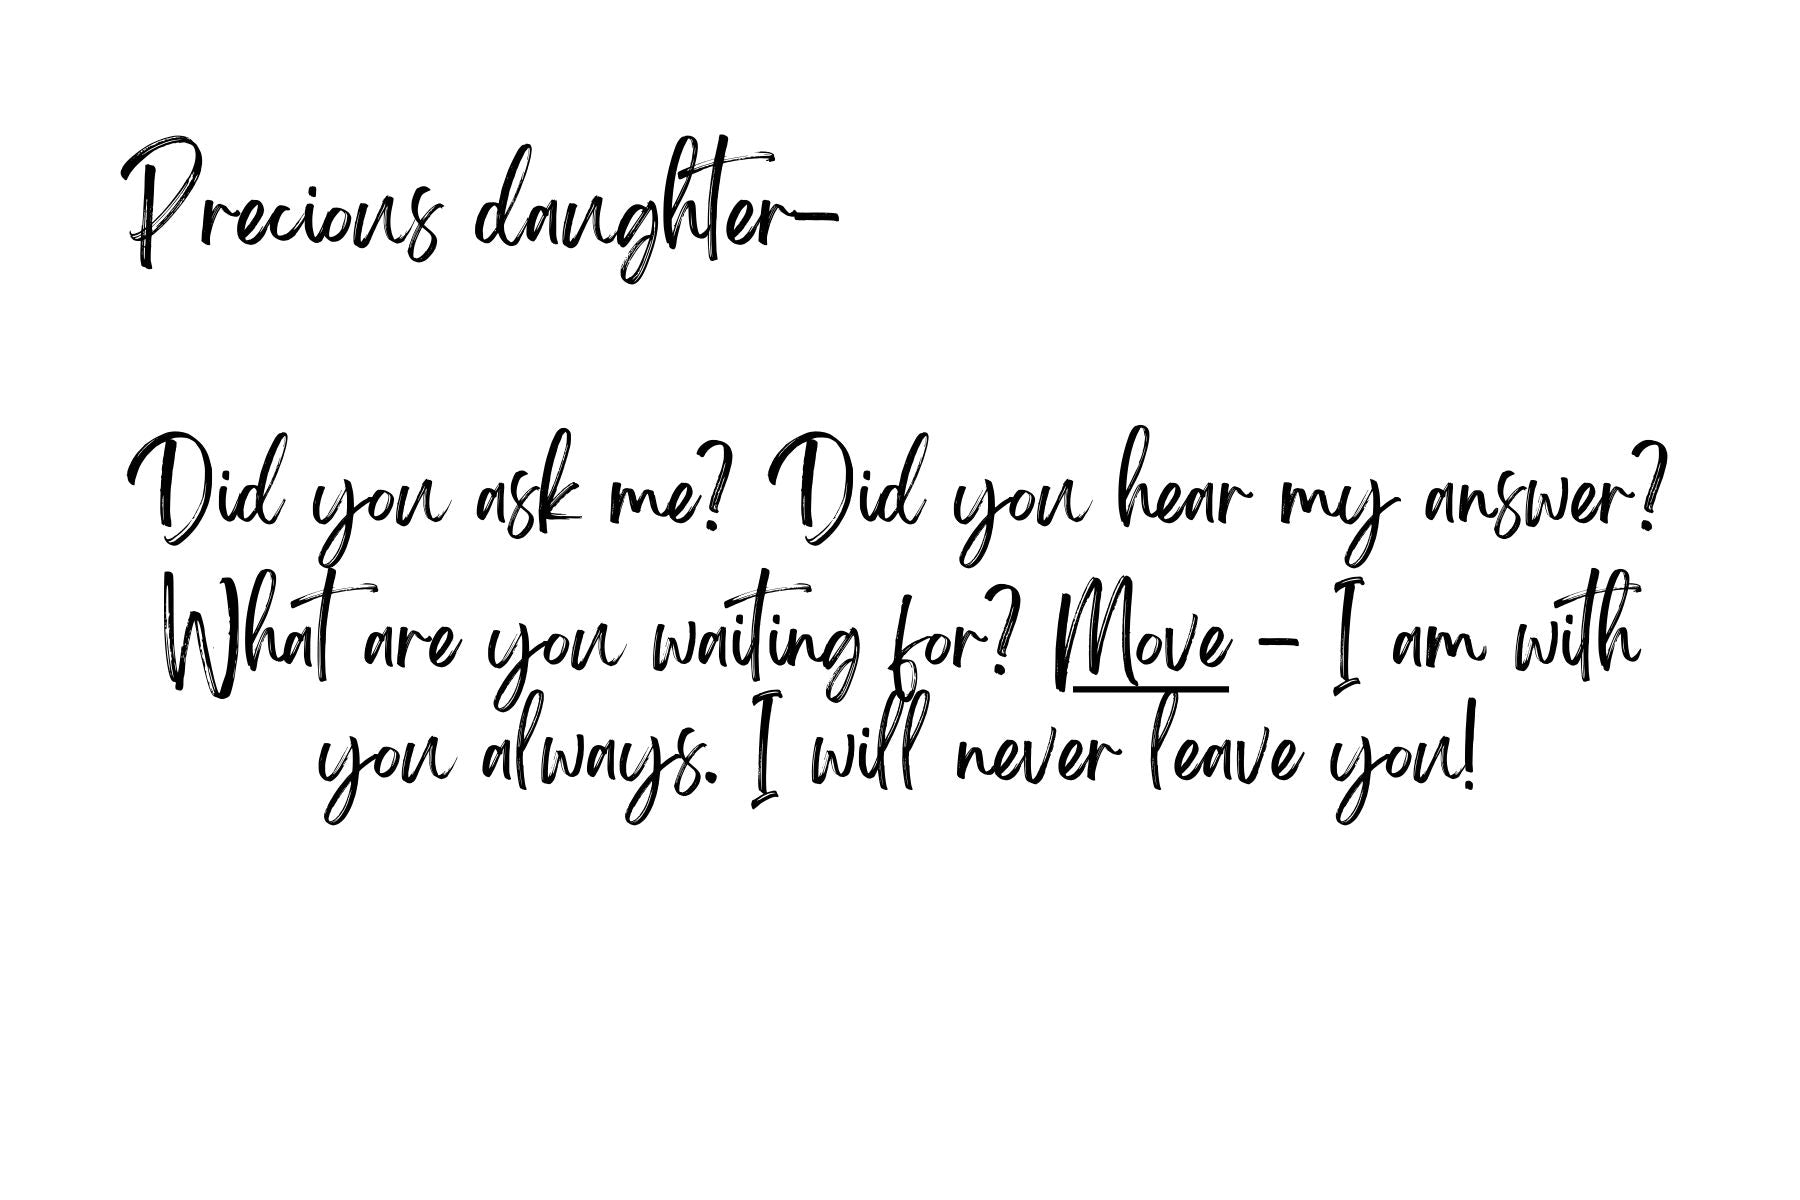 Precious daughter-
Did you ask me? Did you hear my answer?
What are you waiting for? Move - I am with
you always. I will never leave you!